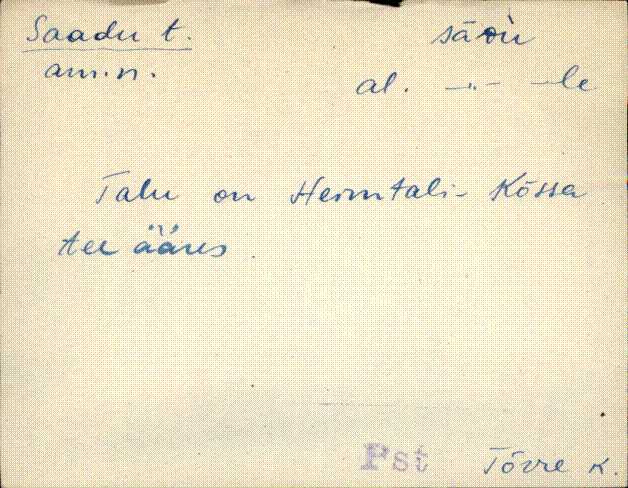 Saadu t.
am.n.
al. —"— -le
Talu on Heimtali - Kõssa
tee ääres.
Pst Tõrre K.